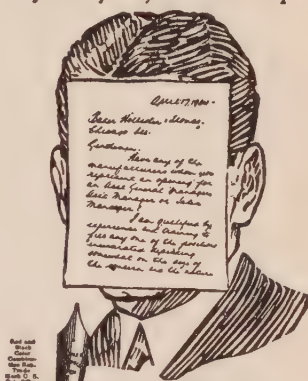 April 17, 19
Chicago Ills.
Gentlemen:
Have any of the
manufacturers whom you
represent an opening for
an Asst General Manager,
Sales Manager or Sales
Manager?
I can qualify by
experience and training to
fill any one of the positions
enumerated depending
somewhat on the size of
the concern and the
Red and
Black
Color
Combination
Reg.
Trade
Mark U. S.